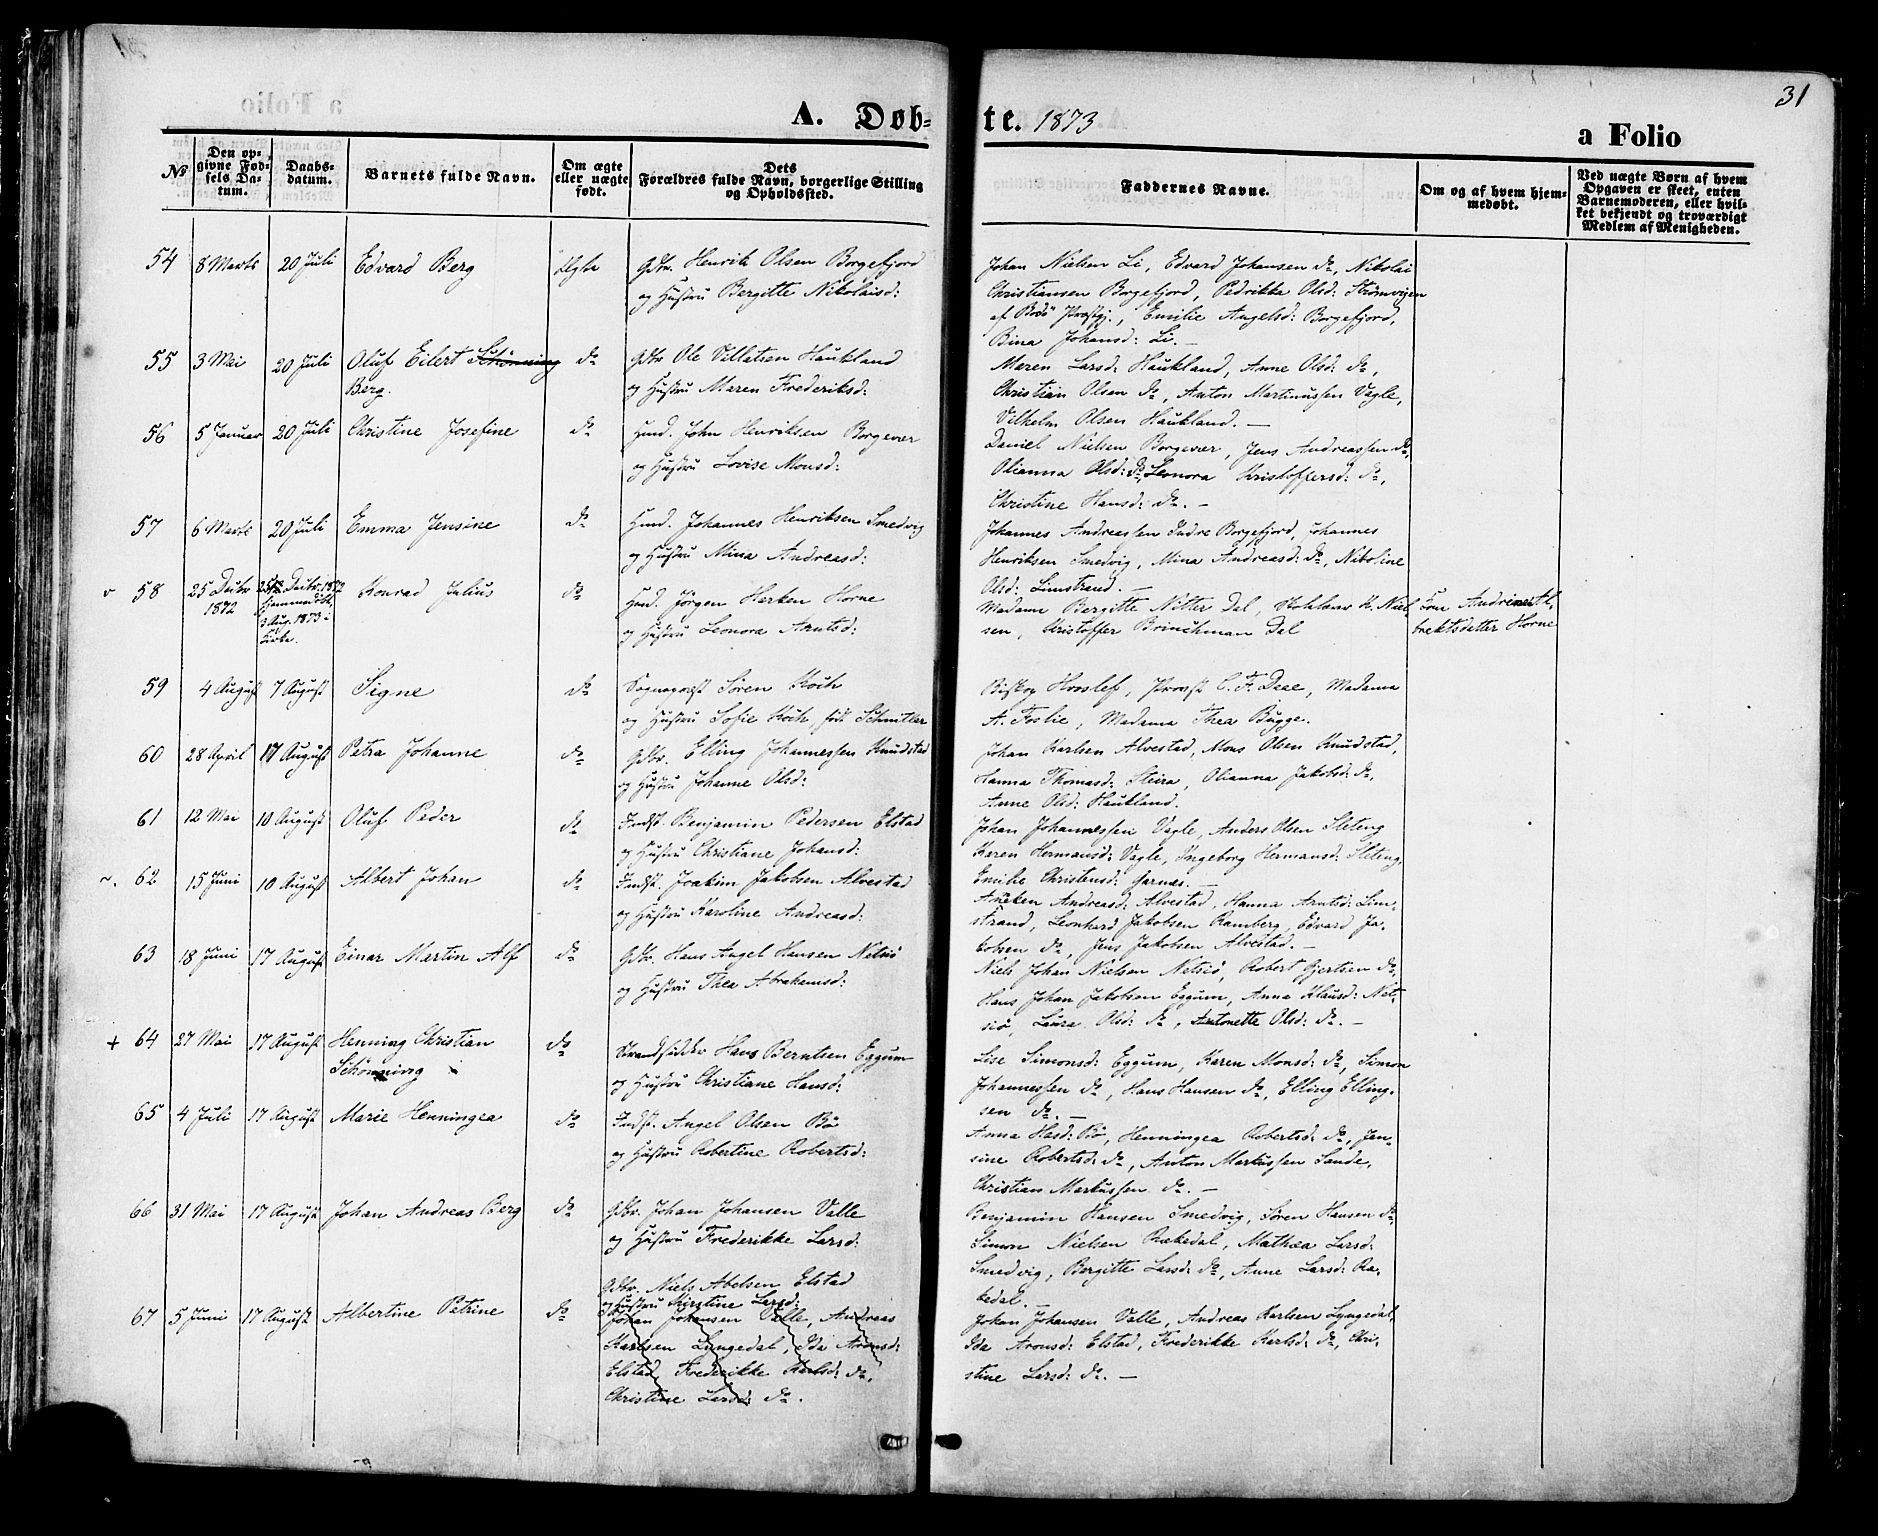 31
A. Døbte. 1873
a Folio
№
Den opgivne Fødsels Datum.
Daabsdatum.
Barnets fulde Navn.
Om ægte eller uægte født.
Dets Forældres fulde Navn, borgerlige Stilling og Opholdssted.
Faddernes Navne.
Om og af hvem hjemmedøbt.
Ved uægte Børn af hvem Opgaven er skeet, enten Barnemoderen, eller hvilket bekjendt og troværdigt Medlem af Menigheden.
54 8 Marts 20 Juli Edvard Berg Ægte Gdbr. Henrik Olsen Borgefjord
og Hustru Bergitte Nikolaisd:
Johan Nielsen Li, Edvard Johansen do, Nikolai
Christiansen Borgefjord, Pedrikke Olsd: Strømvigen
af Bodö Præstgj., Emilie Angelsd: Borgefjord,
Bina Johansd: Li. —
55 3 Mai 20 Juli Oluf Eilert Schönning do Gdbr Ole Villatsen Haukland
Berg. og Hustru Maren Frederiksd:
Maren Larsd: Haukland, Anne Olsd: do,
Christian Olsen do, Anton Martinussen Vagle,
Vilhelm Olsen Haukland. —
56 5 Januar 20 Juli Christine Josefine do Husd. John Henriksen Borgevær
og Hustru Lovise Monsd:
Daniel Nielsen Borgevær, Jens Andreassen do,
Olianna Olsd: do, Leonora Kristoffersd: do,
Christine Hansd: do. —
57 6 Marts 20 Juli Emma Jensine do Husd. Johannes Henriksen Smedvig
og Hustru Mina Andreasd:
Johannes Andreassen Indre Borgefjord, Johannes
Henriksen Smedvig, Mina Andreasd: do, Nikoline
Olsd: Limstrand. —
58 25 Decbr 1872 25de Decbr. 1872 Hjemmedøbt, 3 Aug. 1873 i Kirke. Konrad Julius do Husd. Jörgen Herken Horne
og Hustru Leonora Arntsd:
Madame Bergitte Nitter Dal, K. Nielsen, Kristoffer Brinchman Dal
Fru Andrine Albrektsdatter Horne
59 4 August 7 August Signe do Sognepræst Sören Koch
og Hustru Sofie Koch, født Schnitler
Biskop Hvoslef, Provst C. F. Daae, Madame
A. Foslie, Madame Thea Bugge.
60 28 April 17 August Petra Johanne do Gdbr. Elling Johannessen Knudstad
og Hustru Johanne Olsd:
Johan Karlsen Alvestad, Mons Olsen Knudstad,
Hanna Thomasd: Steira, Olianna Jakobsd: do,
Anne Olsd: Haukland.
61 12 Mai 10 August Oluf Peder do Indst. Benjamin Pedersen Elstad
og Hustru Christiane Johansd:
Johan Johannessen Vagle, Anders Olsen Sleteng
Karen Hermansd: Vagle, Ingeborg Hermansd: Sleteng,
Emilie Christensd: Garnes. —
62 15 Juni 10 August Albert Johan do Indst. Joakim Jakobsen Alvestad
og Hustru Karoline Andreasd:
Aneken Andreasd: Alvestad, Hanna Arntsd: Limstrand, Leonhard Jakobsen Ramberg, Edvard Jakobsen do, Jens Jakobsen Alvestad. —
63 18 Juni 17 August Einar Martin Alf do Gdbr. Hans Angel Hansen Netsiö
og Hustru Thea Abrahamsd:
Niels Johan Nielsen Netsiö, Robert Gjertsen do,
Hans Johan Jakobsen Eggum, Anna Klausd: Netsiö, Laura Olsd: do, Antonette Olsd: do. —
+ 64 27 Mai 17 August Henning Christian do Strandsidder Hans Berntsen Eggum
Schönning og Hustru Christiane Hansd:
Lise Simonsd: Eggum, Karen Monsd: do, Simon
Johannessen do, Hans Hansen do, Elling Ellingsen do. —
65 4 Juli 17 August Marie Henningea do Indst. Angel Olsen Bö
og Hustru Robertine Robertsd:
Anna Hasd: Bö, Henningea Robertsd: do, Jensine Robertsd: do, Anton Markussen Sande,
Christian Markussen do. —
66 31 Mai 17 August Johan Andreas Berg do Gdbr. Johan Johansen Valle
og Hustru Frederikke Larsd:
Benjamin Hansen Smedvig, Sören Hansen do,
Simon Nielsen Rækedal, Mathea Larsd:
Smedvig, Bergitte Larsd: do, Anne Larsd: Rakedal. —
67 5 Juni 17 August Albertine Petrine do Gdbr. Niels Abelsen Elstad
og Hustru Kirstine Larsd:
Johan Johansen Valle, Andreas
Karlsen Lyngedal, Ida Aronsd:
Elstad, Frederikke Karlsd: do,
Christine Larsd: do.
Johan Johansen Valle, Andreas Karlsen Lyngedal,
Ida Aronsd: Elstad, Frederikke Karlsd: do, Christine Larsd: do. —